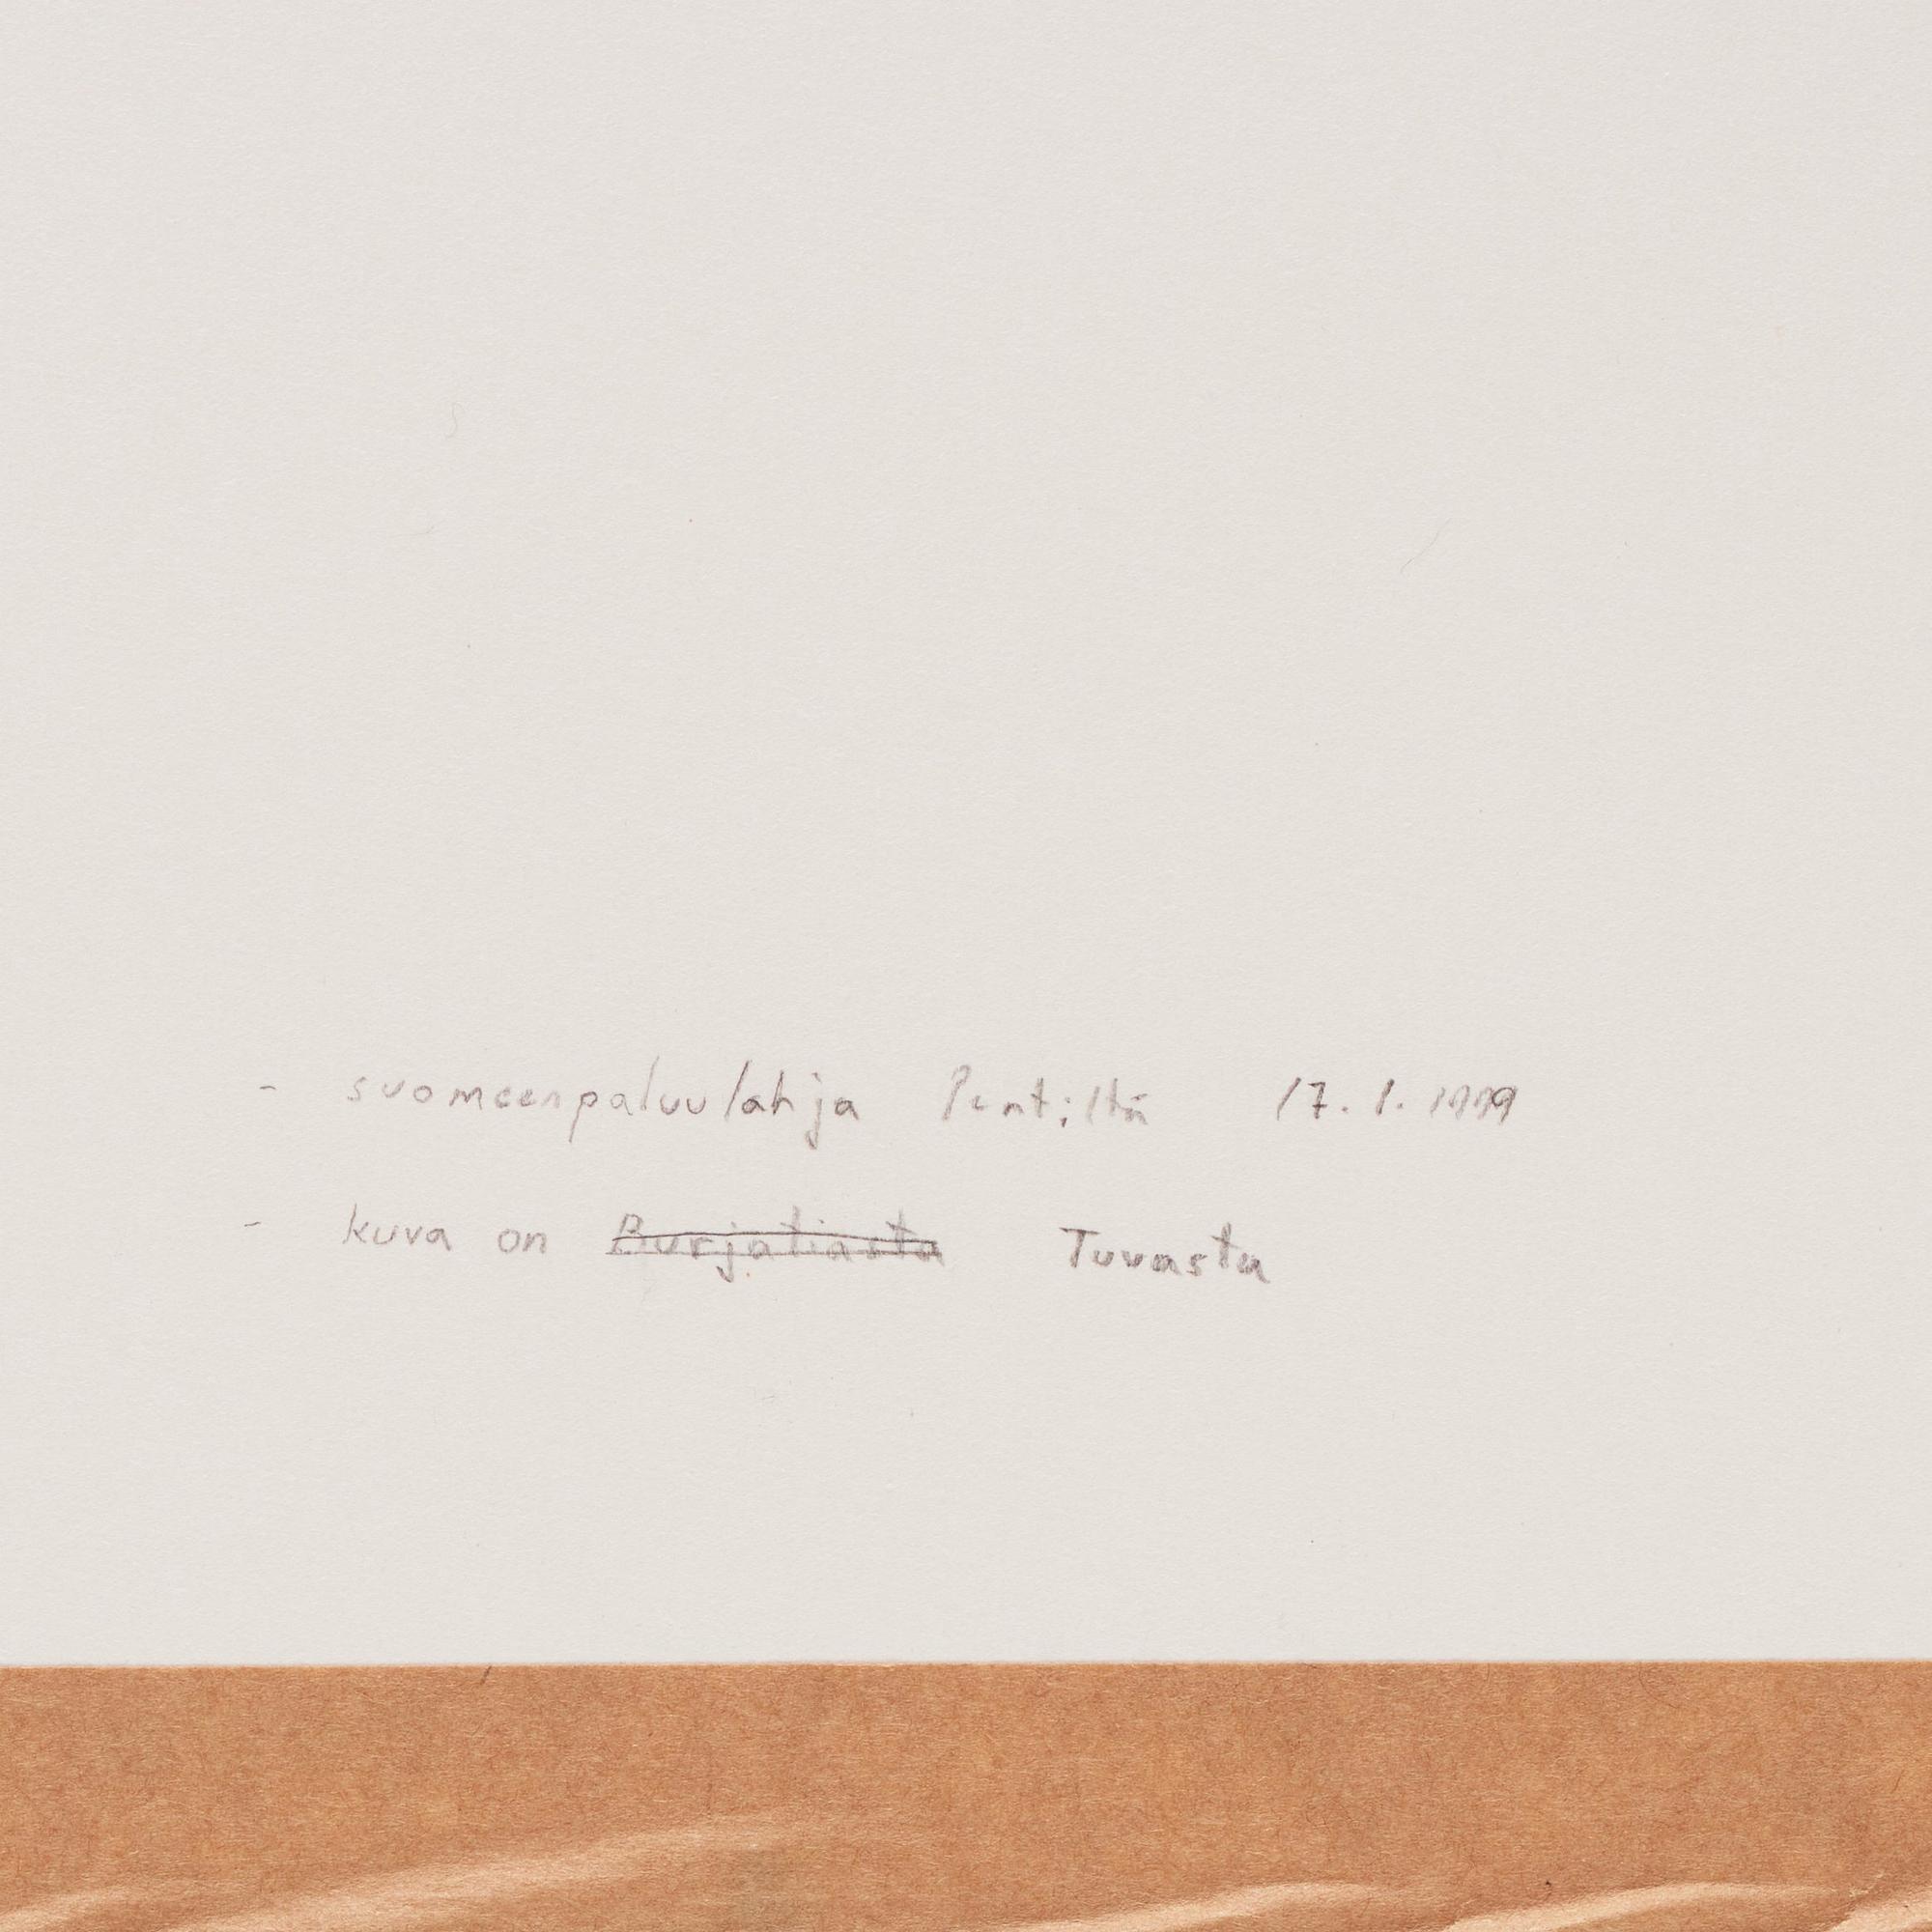 - suomeenpaluulahja Pentiltä 17.1.1999
- kuva on Burjatiasta Tuvasta